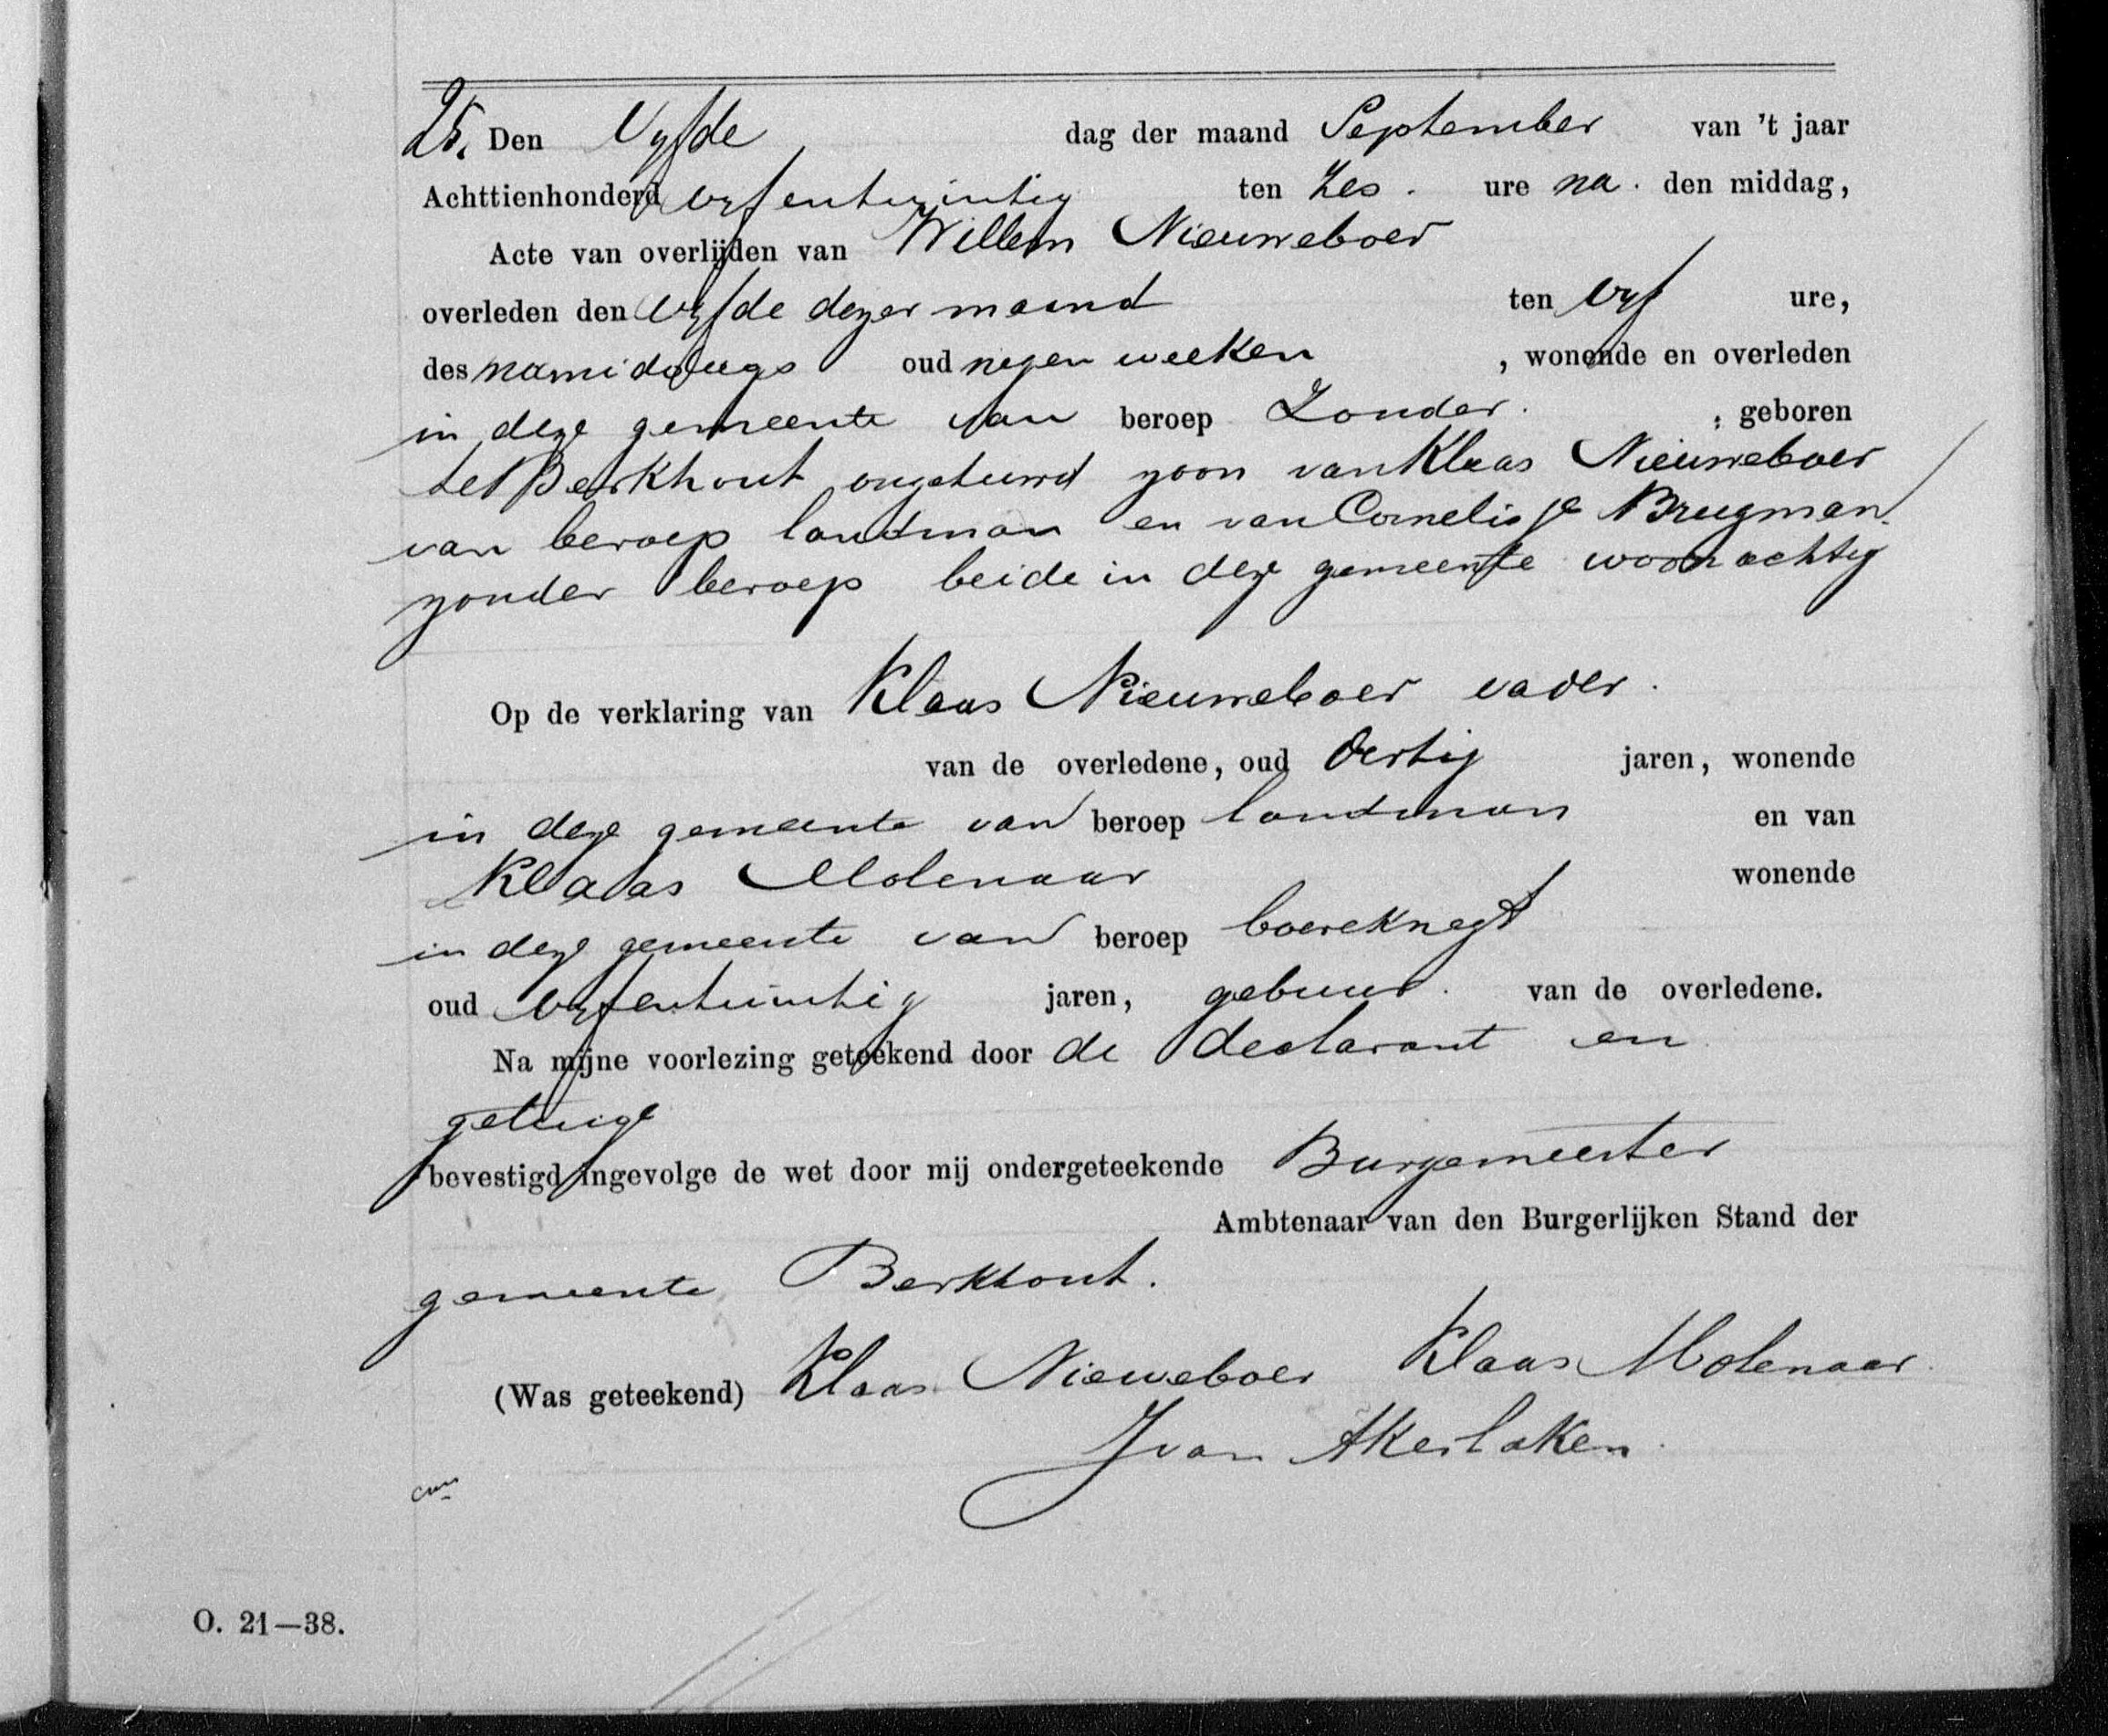 25. Den Vyfde dag der maand September van 't jaar
Achttienhonderd vyfentwintig ten Zes. ure na. den middag,
Acte van overlijden van Willem Nieuweboer
overleden den vyfde dezer maand ten vyf ure,
des namiddags oud negen weeken , wonende en overleden
in deze gemeente van beroep Zonder. ; geboren
te Berkhout ongehuwd zoon van Klaas Nieuweboer
van beroep landman en van Cornelisje Brugman
zonder beroep beide in deze gemeente woonachtig
Op de verklaring van Klaas Nieuweboer vader.
van de overledene, oud dertig jaren, wonende
in deze gemeente van beroep landman en van
Klaas Molenaar wonende
in deze gemeente van beroep boereknegt
oud vyfentwintig jaren, gebuur. van de overledene.
Na mijne voorlezing geteekend door de declarant en
getuige
bevestigd ingevolge de wet door mij ondergeteekende Burgemeester
Ambtenaar van den Burgerlijken Stand der
gemeente Berkhout.
(Was geteekend) Klaas Nieweboer Klaas Molenaar
J van Akerlaken
O. 21—38.